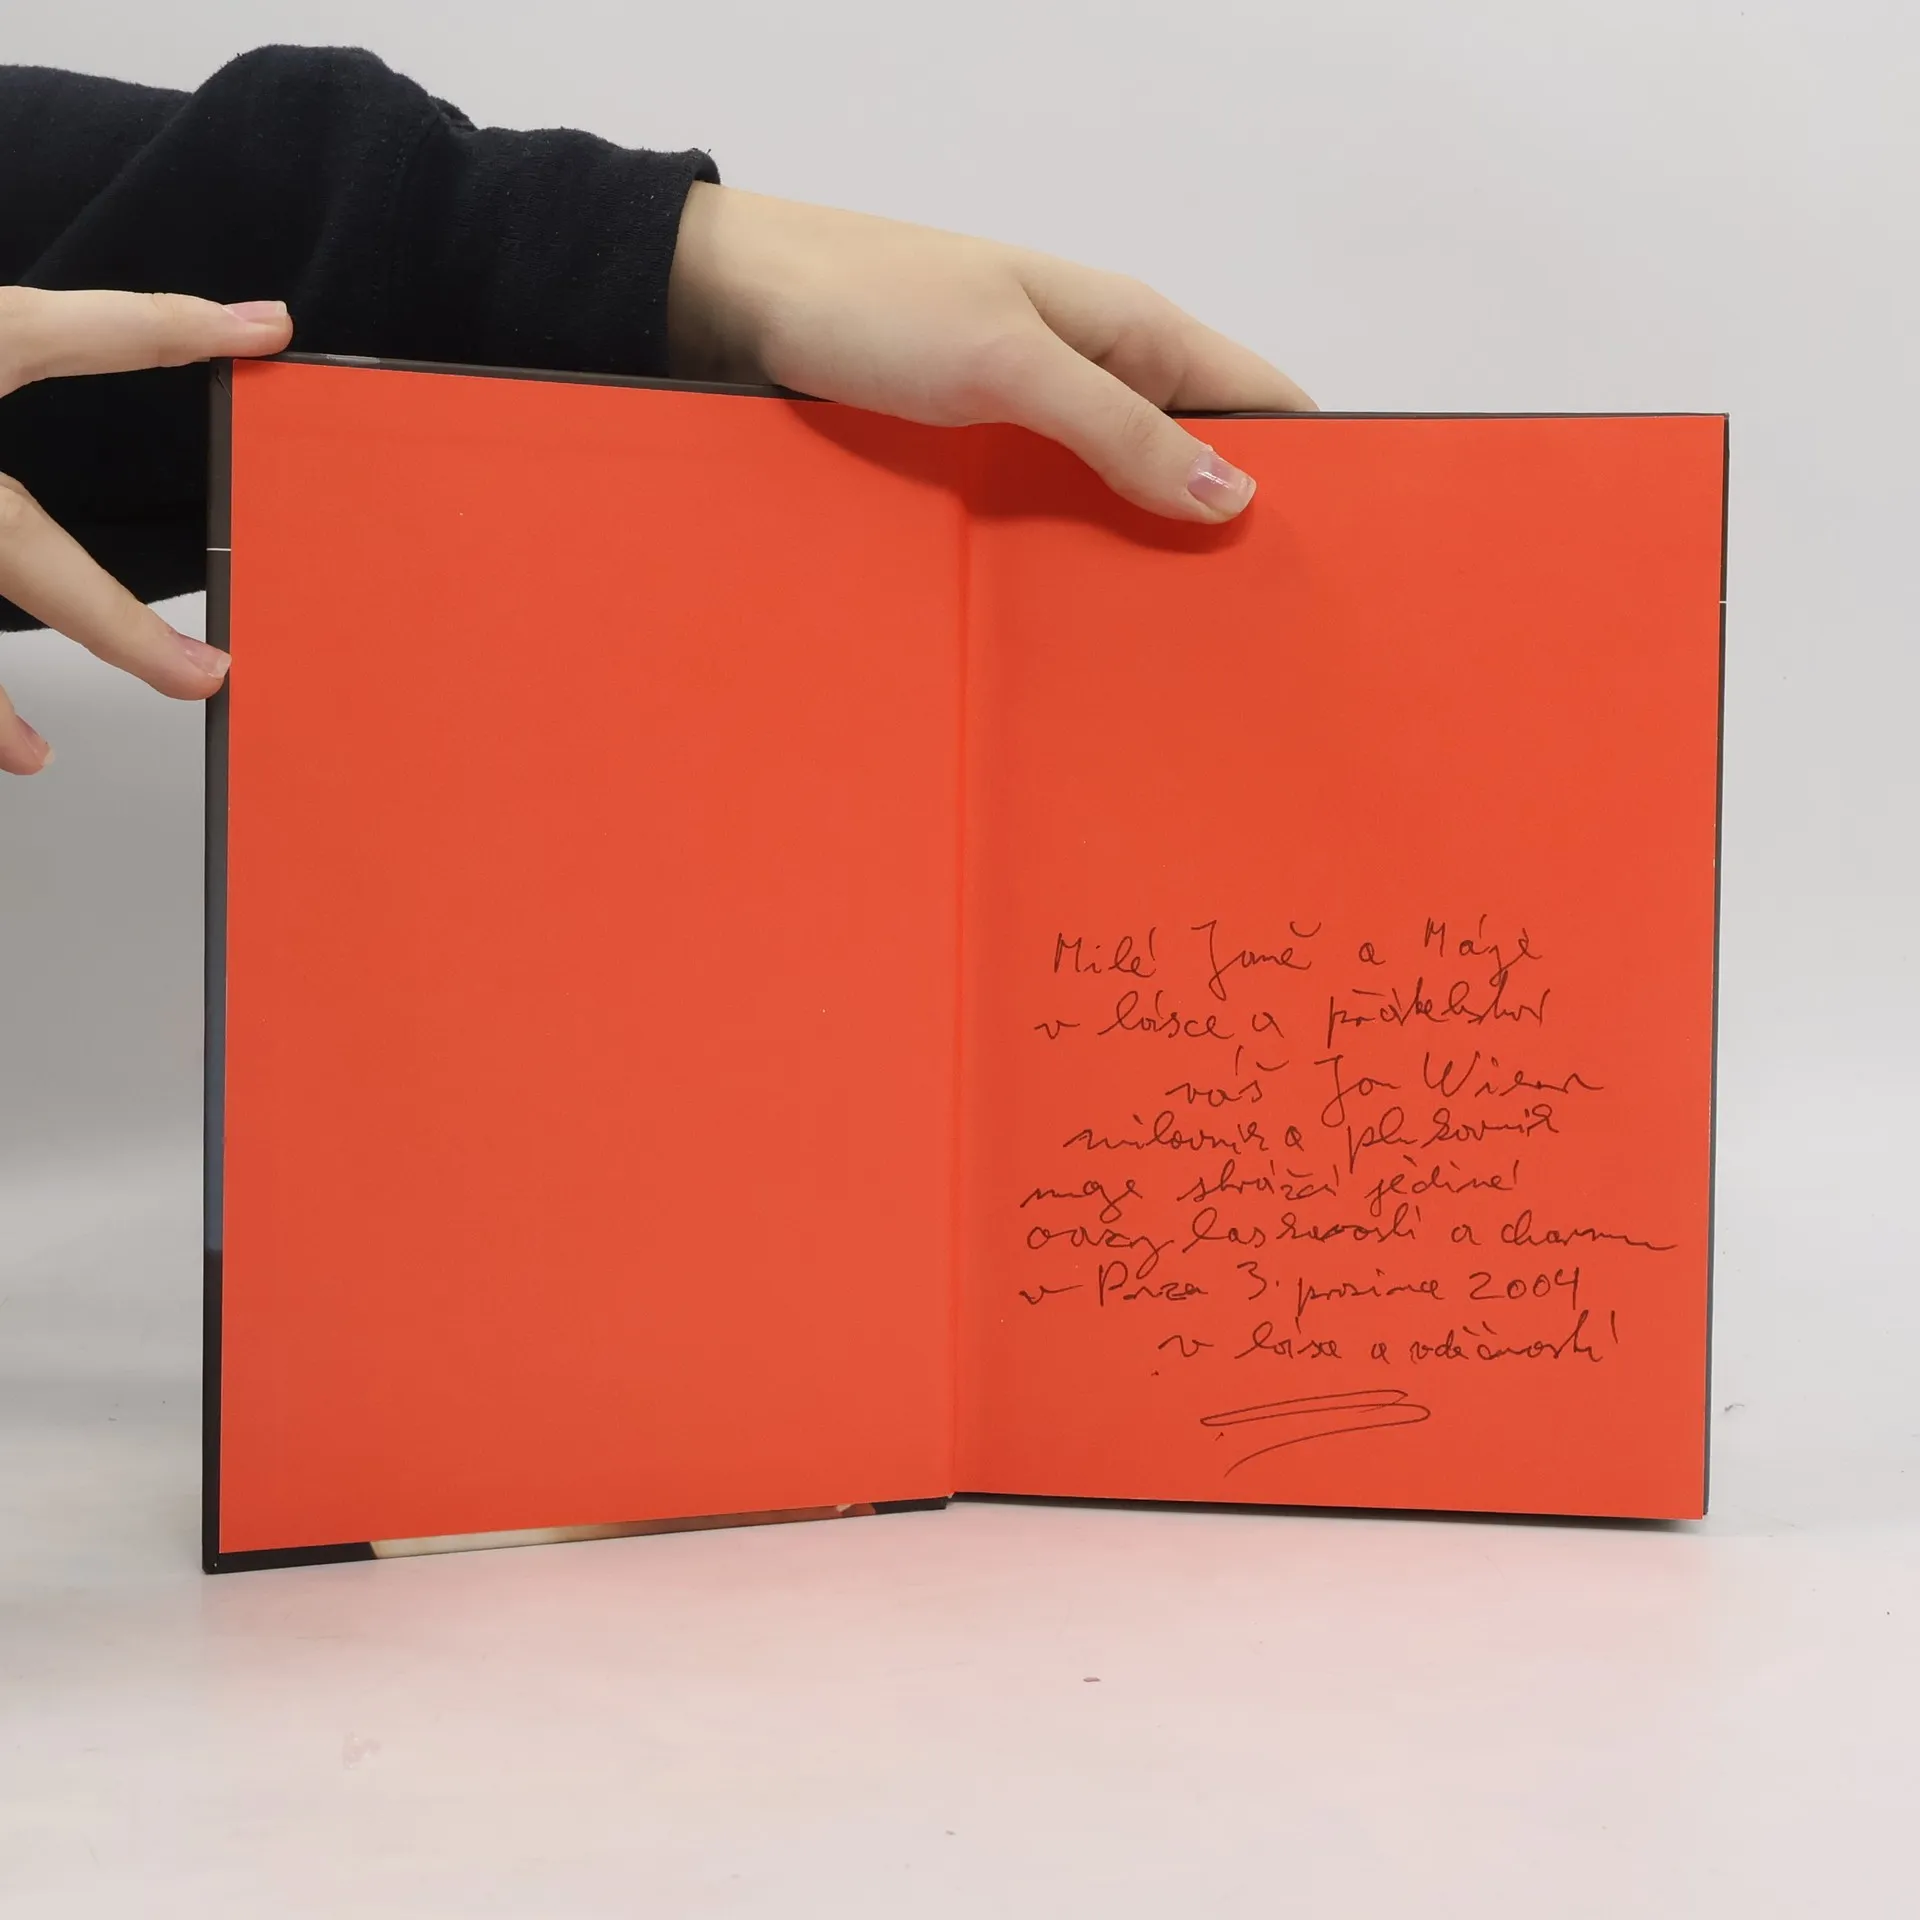 Milé Janě a Mágě
v lásce a přátelství
váš Jan Wiener
milovník a plukovník
moje strážci jediné
oazy laskavosti a charmu
v Praze 3. prosince 2004
v lásce a vděčnosti